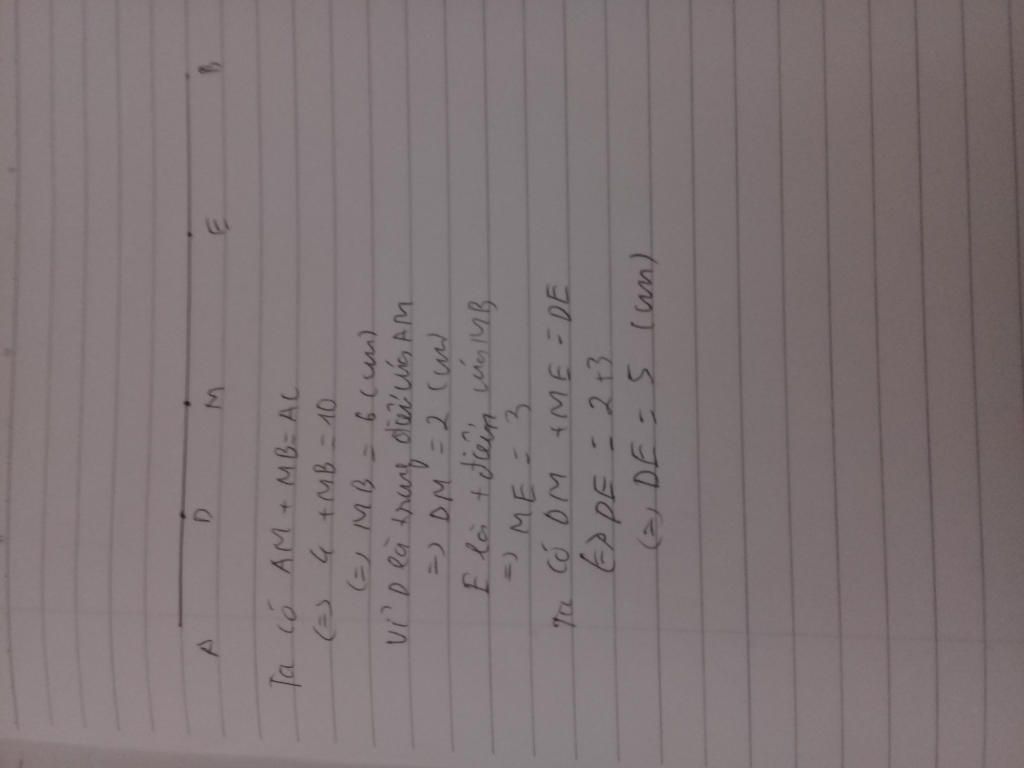 A D M E B
Ta có AM + MB = AC
(=) 4 + MB = 10
(=) MB = 6 (cm)
Vì D là trung điểm của AM
=) DM = 2 (cm)
E là t điểm của MB
=) ME = 3
Ta có DM + ME = DE
(=) DE = 2+3
(=) DE = 5 (cm)